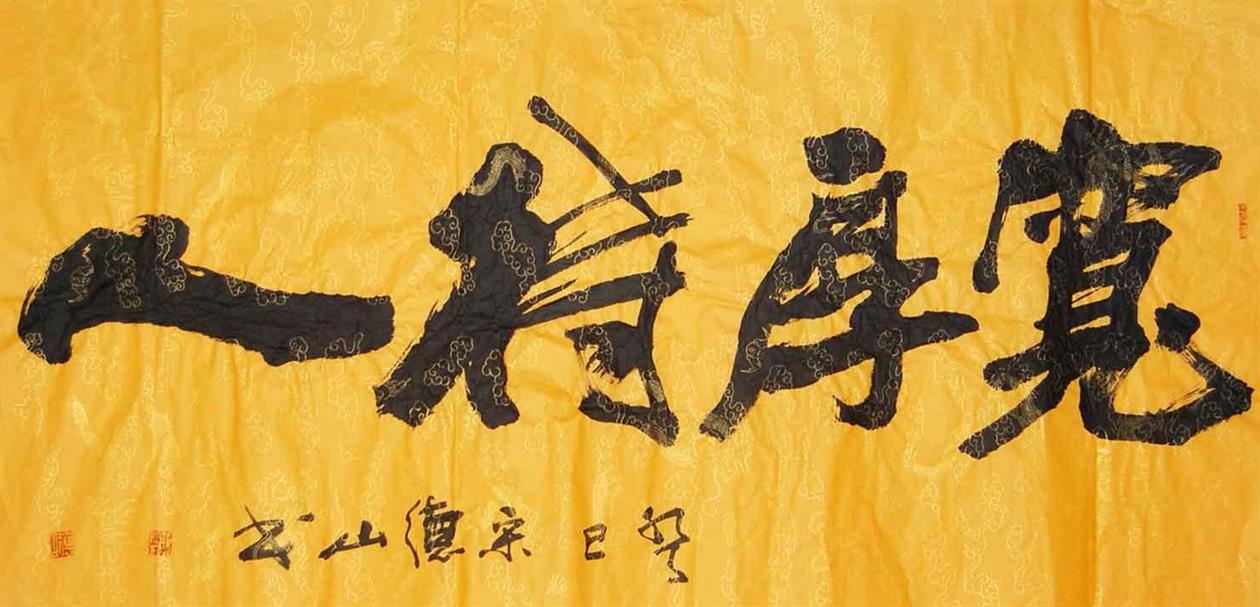 寬厚待人
癸巳 宋德山书